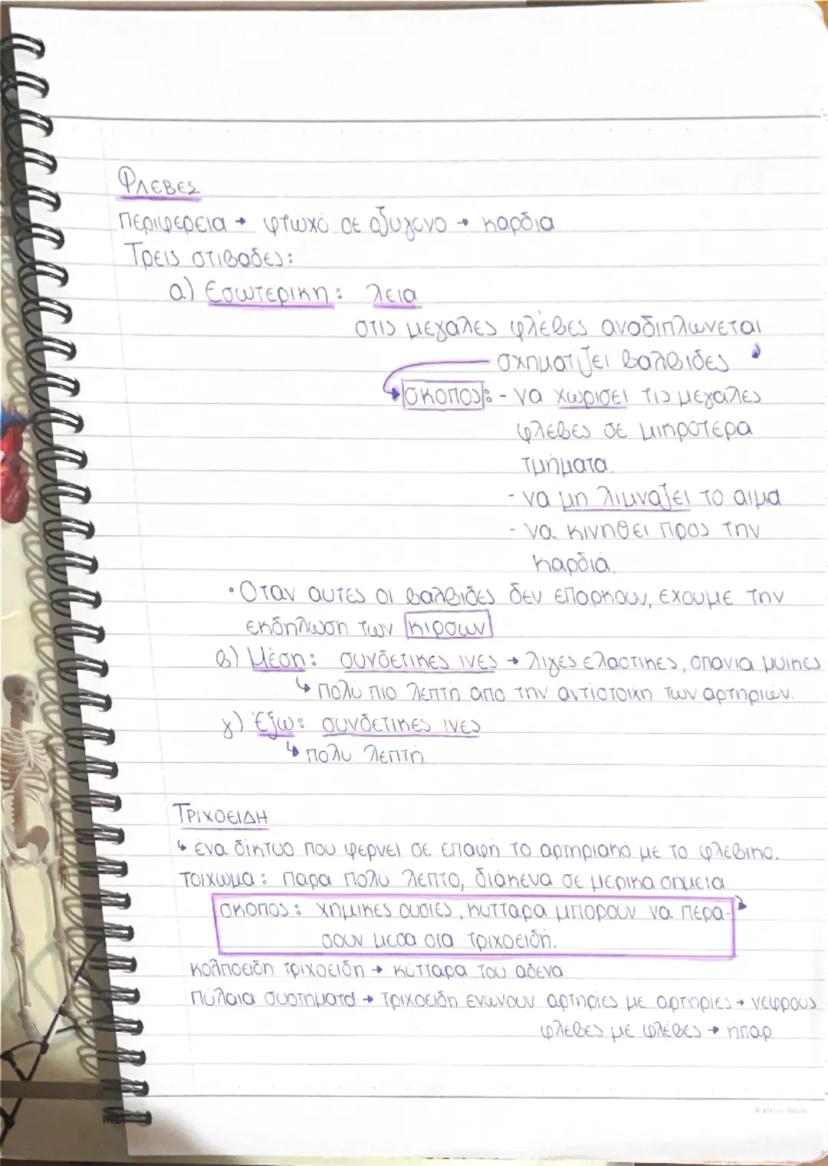 Φλεβες
περιφέρεια → φτωχό σε οξυγονο → καρδια
Τρεις στιβαδες:
α) Εσωτερικη: λεια
στις μεγαλες φλέβες αναδιπλωνεται
σχηματιζει βαλβιδες
σκοπος: - να χωρισει τις μεγαλες
φλεβες σε μικρότερα
τμήματα.
- να μη λιμναζει το αιμα
- να κινηθει προς την
καρδια.
• Οταν αυτες οι βαλβιδες δεν επαρκουν, εχουμε την
εκδηλωση των κιρσων
β) Μέση: συνδετικες ινες → λιγες ελαστικες, σπανια μυϊκες
↳ πολυ πιο λεπτή απο την αντιστοιχη των αρτηριών.
γ) Έξω: συνδετικες ινες
↳ πολυ λεπτη
Τριχοειδη
↳ ένα δίκτυο που φερνει σε επαφη το αρτηριακο με το φλεβικο.
τοιχωμα: παρα πολυ λεπτο, διακενα σε μερικα σημεια
σκοπος: χημικες ουσιες, κυτταρα μπορουν να περα-
σουν μεσα στα τριχοειδη.
κολποειδη τριχοειδη → κυτταρα του αδενα
πυλαια συστηματα → τριχοειδη ενωνουν αρτηριες με αρτηριες → νεφρους
φλεβες με φλεβες → ηπαρ